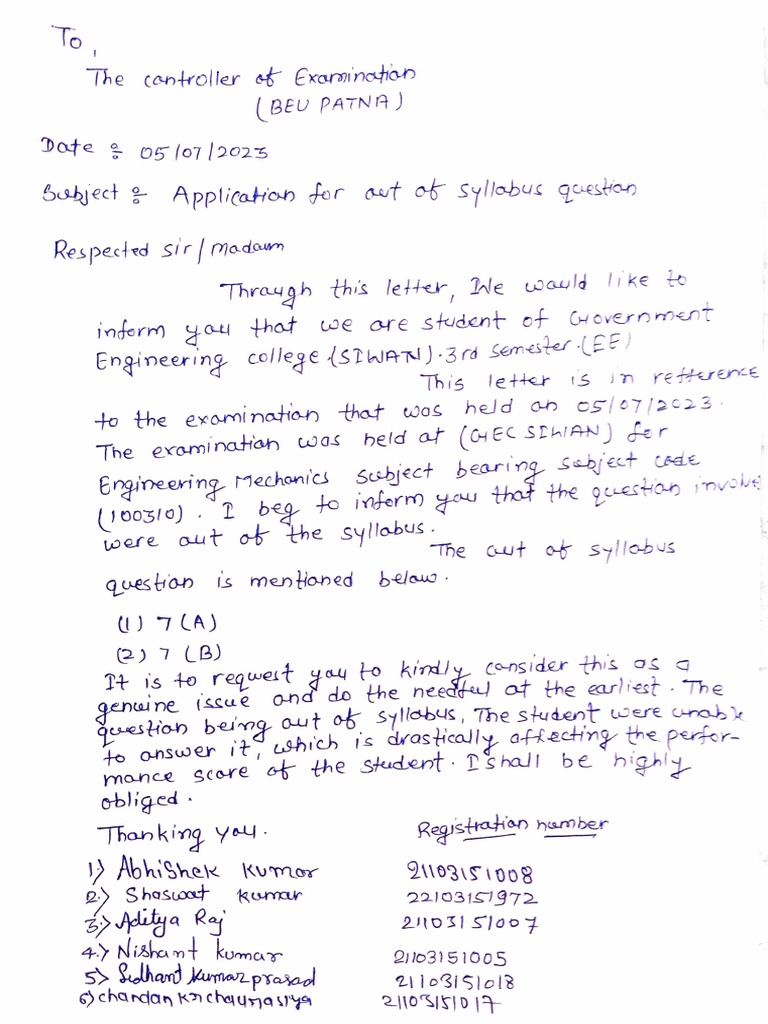 To,
The controller of Examination
(BEU PATNA)
Date : 05/07/2023
Subject : Application for out of syllabus question
Respected sir/madam
Through this letter, We would like to
inform you that we are student of Government
Engineering college.(SIWAN).3rd semester.(EE)
This letter is in refterence
to the examination that was held on 05/07/2023.
The examination was held at (GEC SIWAN) for
Engineering Mechanics subject bearing subject code
(100310). I beg to inform you that the question involve
were out of the syllabus.
The out of syllabus
question is mentioned below.
(1) 7 (A)
(2) 7 (B)
It is to request you to kindly consider this as a
genuine issue and do the needful at the earliest. The
question being out of syllabus, The student were unable
to answer it, which is drastically affecting the perfor-
mance score of the student. I shall be highly
obliged.
Thanking you.
Registration number
1) Abhishek kumar 21103151008
2) Shaswat kumar 22103151972
3) Aditya Raj 21103151007
4) Nishant kumar 21103151005
5) Sidhant kumar prasad 21103151018
6) chandan kr chaurasiya 21103151017